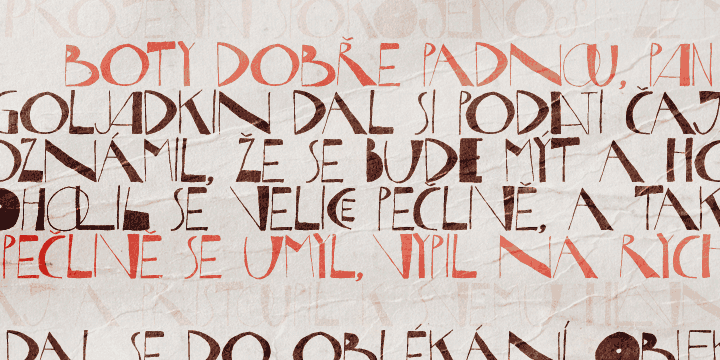 BOTY DOBŘE PADNOU, PAN
GOLJADKIN DAL SI PODATI ČAJ
OZNÁMIL, ŽE SE BUDE MÝT A HO
OHOLIL SE VELICE PEČLIVĚ, A TAK
PEČLIVĚ SE UMYL, VYPIL NA RYCH
DAL SE DO OBLÉKÁNÍ OBLEK